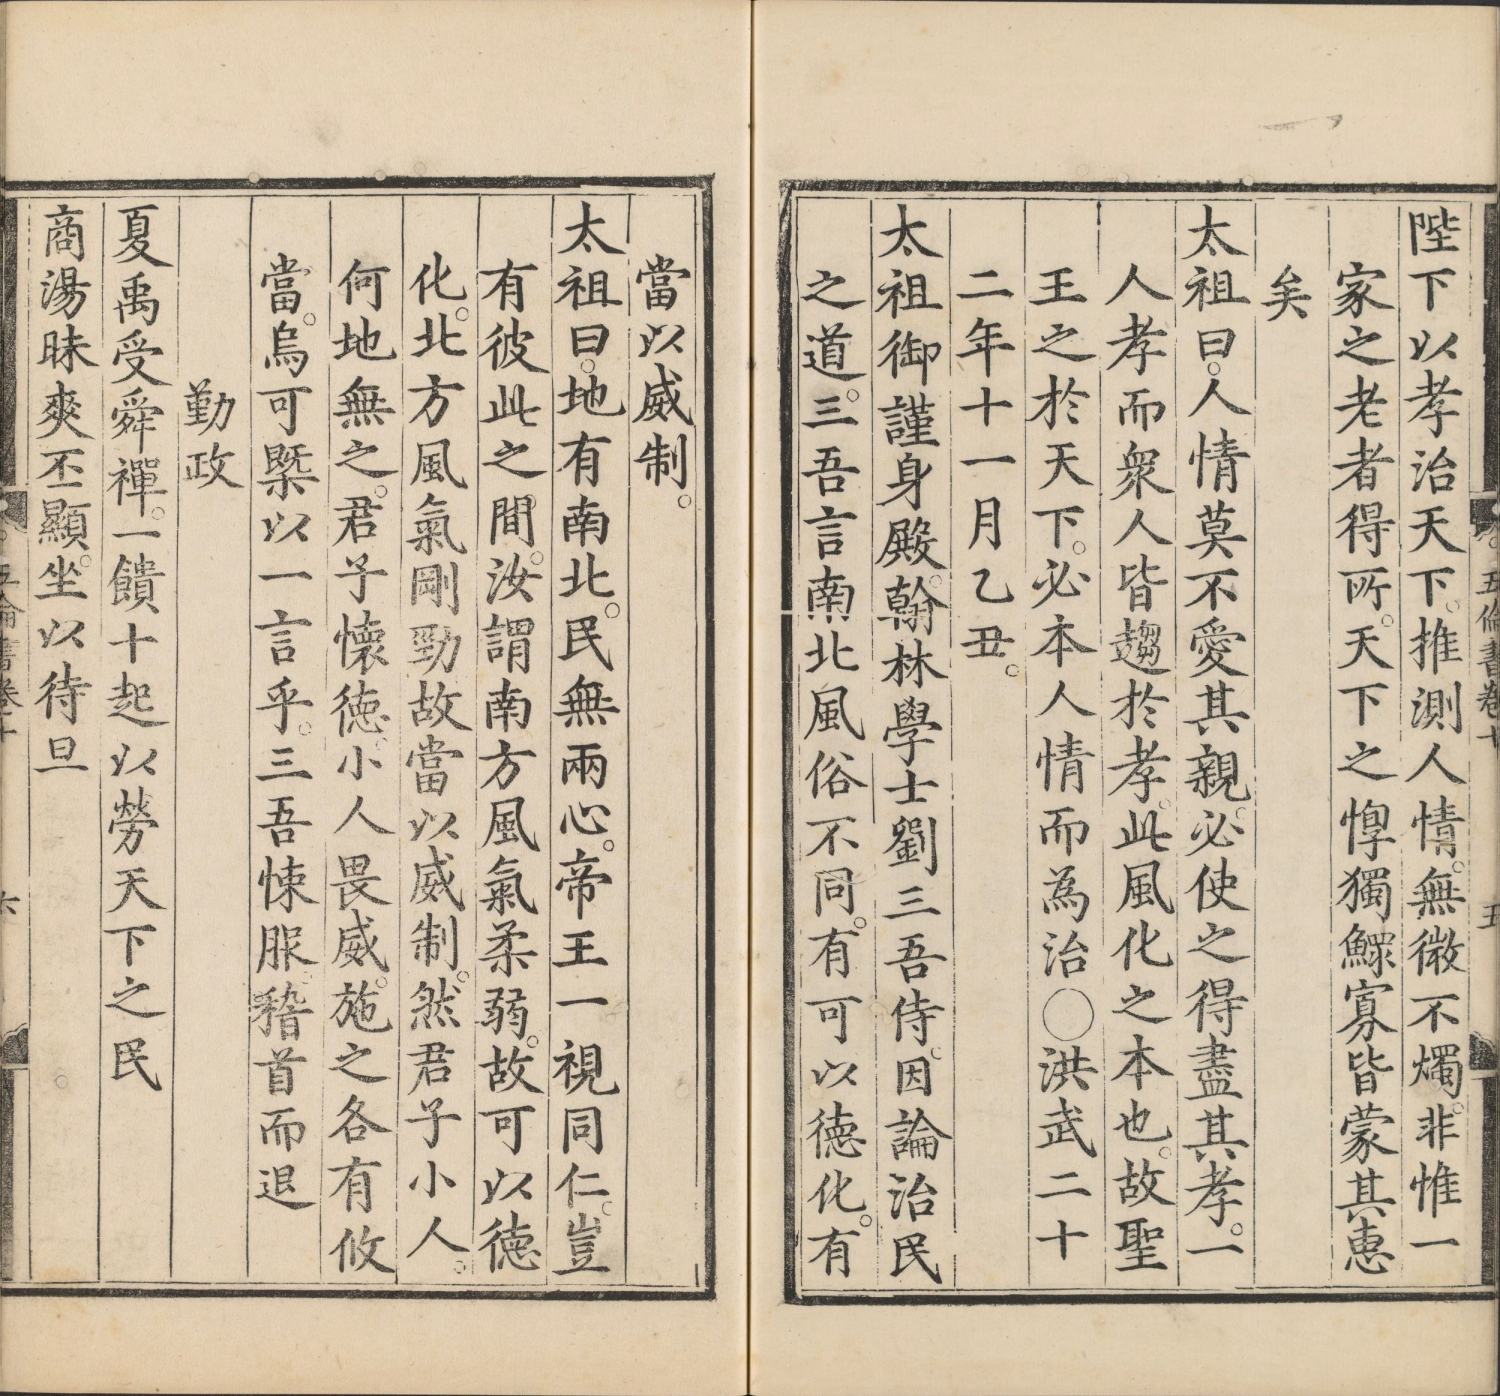 陛下以孝治天下。推測人情。無微不燭。非惟一
家之老者得所。天下之惸獨鰥寡皆蒙其惠
矣
太祖曰。人情莫不愛其親。必使之得盡其孝。一
人孝而衆人皆趨於孝。此風化之本也。故聖
王之於天下。必本人情而為治○洪武二十
二年十一月乙丑。
太祖御謹身殿。翰林學士劉三吾侍。因論治民
之道。三吾言南北風俗不同。有可以德化。有
當以威制。
太祖曰。地有南北。民無兩心。帝王一視同仁。豈
有彼此之間。汝謂南方風氣柔弱。故可以德
化。北方風氣剛勁故當以威制。然君子小人。
何地無之。君子懷德。小人畏威。施之各有攸
當。烏可槩以一言乎。三吾悚服。稽首而退
勤政
夏禹受舜禪。一饋十起以勞天下之民
商湯昧爽丕顯。坐以待旦
五倫書卷十
五
五倫書卷十
六